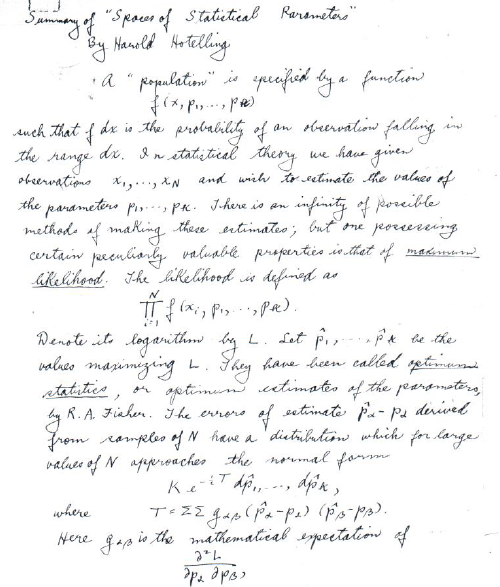 Summary of "Spaces of Statistical Parameters"
By Harold Hotelling
A "population" is specified by a function
f(x, p₁, ..., pₖ)
such that f dx is the probability of an observation falling in
the range dx. In statistical theory we have given
observations x₁, ..., x_N and wish to estimate the values of
the parameters p₁, ..., pₖ. There is an infinity of possible
methods of making these estimates; but one possessing
certain peculiarly valuable properties is that of maximum
likelihood. The likelihood is defined as
∏ᵢ₌₁ᴺ f(xᵢ, p₁, ..., pₖ).
Denote its logarithm by L. Let p̂₁, ..., p̂ₖ be the
values maximizing L. They have been called optimum
statistics, or optimum estimates of the parameters,
by R. A. Fisher. The errors of estimate p̂_α - p_α derived
from samples of N have a distribution which for large
values of N approaches the normal form
K e^-T dp̂₁, ..., dp̂ₖ,
where T = ΣΣ g_αβ (p̂_α - p_α) (p̂_β - p_β).
Here g_αβ is the mathematical expectation of
∂²L / ∂p_α ∂p_β,